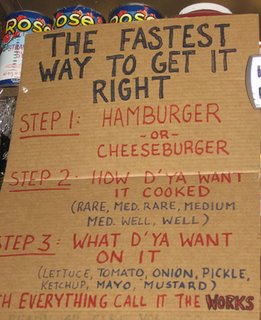 ROSE
ROSE
ROSE
THE FASTEST
WAY TO GET IT
RIGHT
STEP 1: HAMBURGER
-OR-
CHEESEBURGER
STEP 2: HOW D'YA WANT
IT COOKED
(RARE, MED. RARE, MEDIUM
MED. WELL, WELL)
STEP 3: WHAT D'YA WANT
ON IT
(LETTUCE, TOMATO, ONION, PICKLE,
KETCHUP, MAYO, MUSTARD)
TH EVERYTHING CALL IT THE WORKS